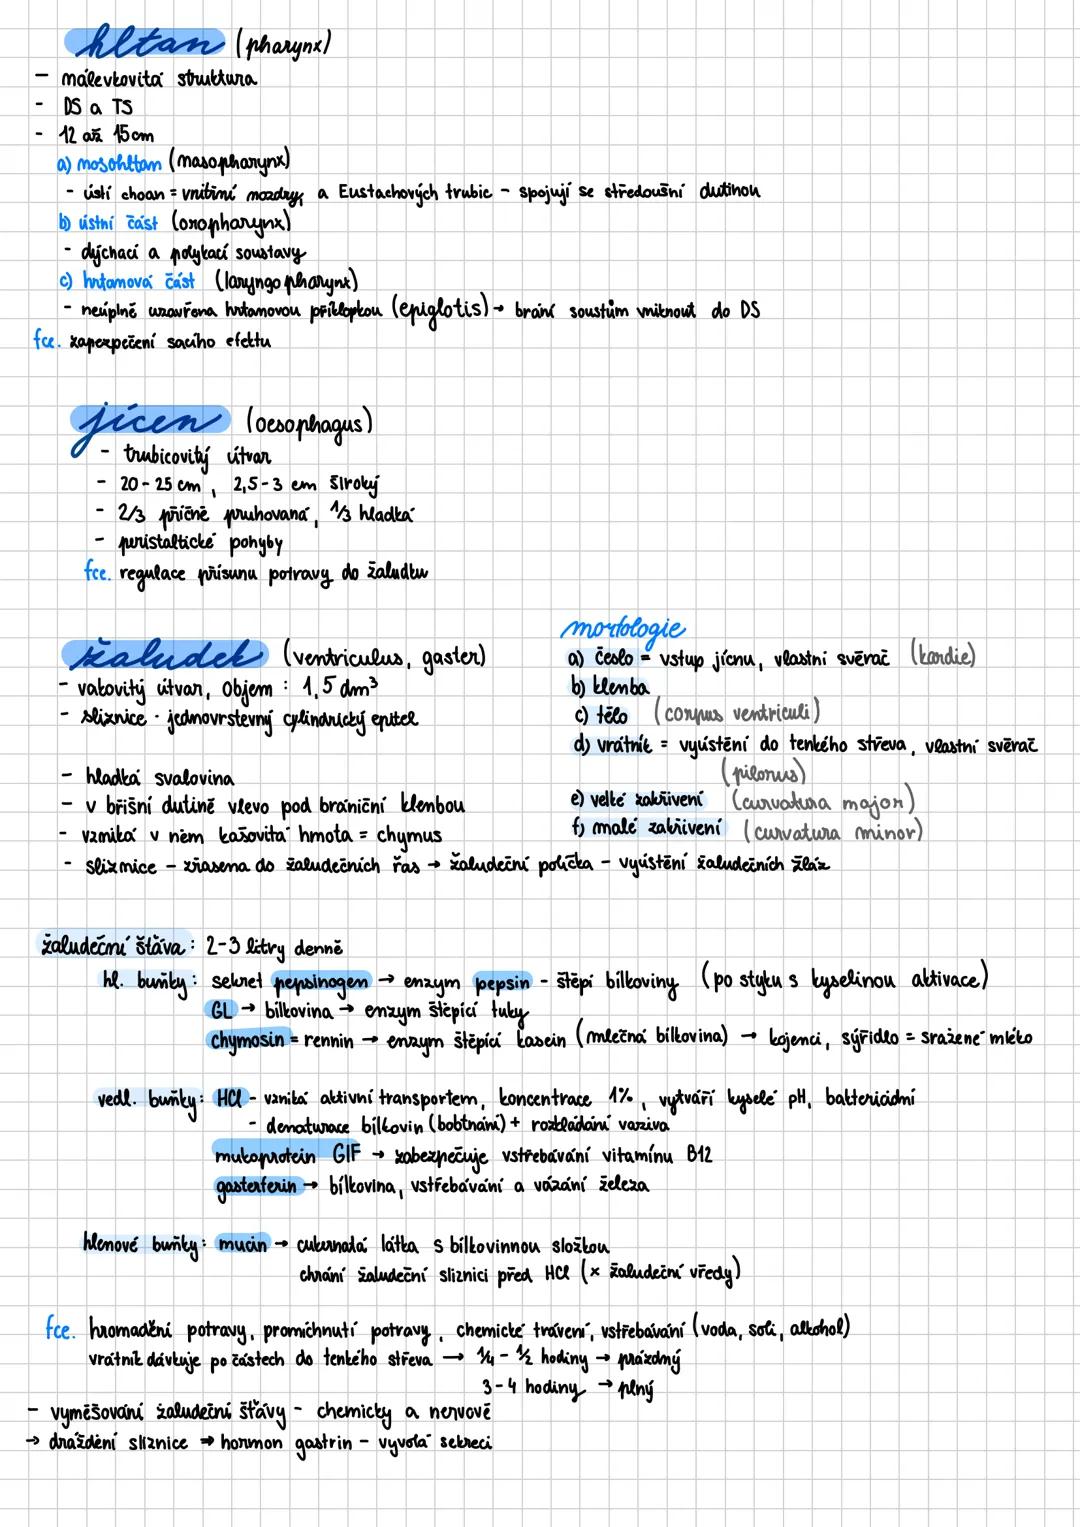 hltan (pharynx)
- málevkovitá struktura
- DS a TS
- 12 až 15cm
a) nosohltan (nasopharynx)
- ústí choan = vnitřní nozdry, a Eustachových trubic - spojují se středoušní dutinou
b) ústní část (oropharynx)
- dýchací a polykací soustavy
c) hrtanová část (laryngopharynx)
- neúplně uzavřena hrtanovou příklopkou (epiglotis) → brání soustům vniknout do DS
fce. zapezpečení sacího efektu
jícen (oesophagus)
- trubicovitý útvar
- 20-25 cm, 2,5-3 cm široký
- 2/3 příčně pruhovaná, 1/3 hladká
- peristaltické pohyby
fce. regulace přísunu potravy do žaludku
žaludek (ventriculus, gaster)
- vakovitý útvar, objem : 1,5 dm³
- sliznice - jednovrstevný cylindrický epitel
- hladká svalovina
- v břišní dutině vlevo pod brániční klenbou
- vzniká v něm kašovitá hmota = chymus
- sliznice - zřasena do žaludečních řas → žaludeční políčka - vyústění žaludečních žláz
morfologie
a) česlo = vstup jícnu, vlastní svěrač (kardie)
b) klenba
c) tělo (corpus ventriculi)
d) vrátník = vyústění do tenkého střeva, vlastní svěrač
(pilorus)
e) velké zakřivení (curvatura major)
f) malé zakřivení (curvatura minor)
žaludeční šťáva : 2-3 litry denně
hl. buňky : sekret pepsinogen → enzym pepsin - štěpí bílkoviny (po styku s kyselinou aktivace)
GL → bílkovina → enzym štěpící tuky
chymosin = rennin → enzym štěpící kasein (mléčná bílkovina) → kojenci, syřidlo = sražené mléko
vedl. buňky : HCl - vzniká aktivní transportem, koncentrace 1%, vytváří kyselé pH, baktericidní
- denaturace bílkovin (bobtnání) + rozkládání vaziva
mukoprotein GIF → zabezpečuje vstřebávání vitamínu B12
gasterferin → bílkovina, vstřebávání a vázání železa
hlenové buňky : mucin → cukernatá látka s bílkovinnou složkou
chrání žaludeční sliznici před HCl (× žaludeční vředy)
fce. hromadění potravy, promíchnutí potravy, chemické trávení, vstřebávání (voda, soli, alkohol)
vrátník dávkuje po částech do tenkého střeva → 1/4 - 1/2 hodiny → prázdný
3-4 hodiny → plný
- vyměšování žaludeční šťávy - chemicky a nervově
→ dráždění sliznice → hormon gastrin - vyvolá sekreci